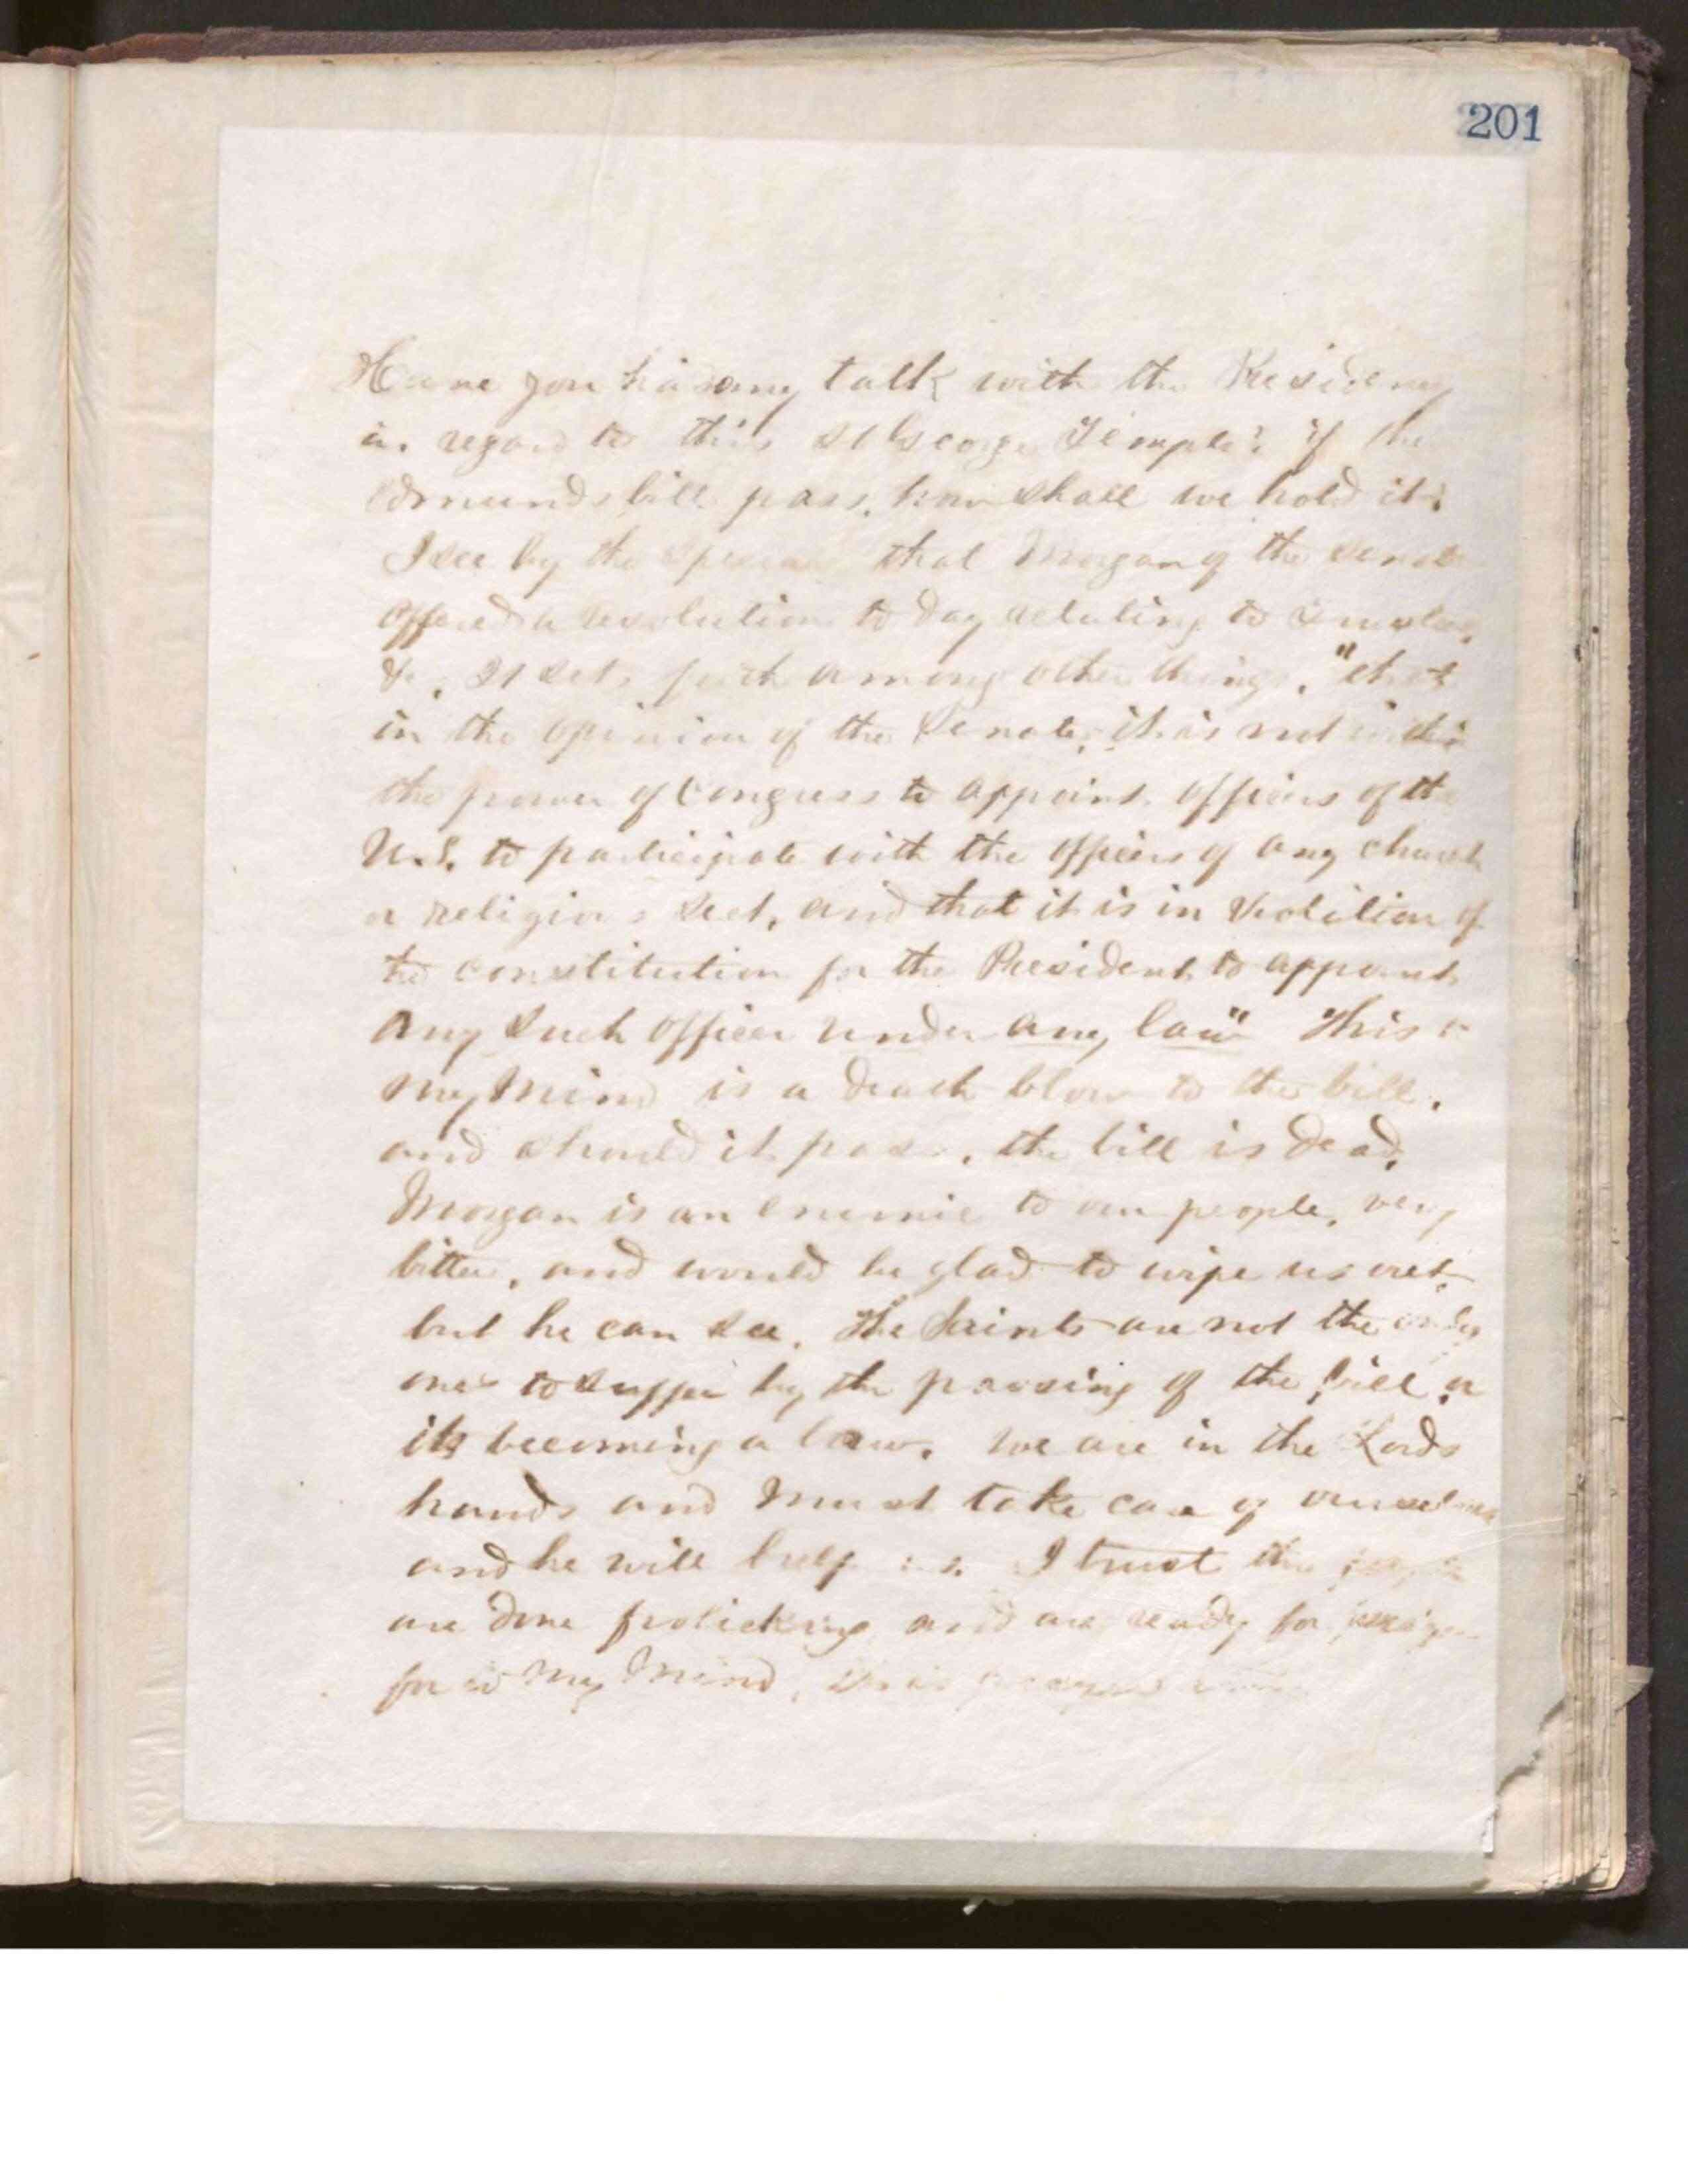 201
Have you had any talk with the Presidency
in regard to this St George Temple? if the
Edmunds bill pass, how shall we hold it?
I see by the special that Morgan of the Senate
offered a resolution to day relating to
&c. It sets forth among other things, "that
in the opinion of the Senate, it is not within
the power of Congress to appoint officers of the
U.S. to participate with the officers of any church
or religious sect, and that it is in violition of
the constitution for the President to appoint
any such officer under any law" This to
my mind is a death blow to the bill.
and should it pass, the bill is dead.
Morgan is an enemie to our people, very
bitter, and would be glad to wipe us out
but he can see, the Saints are not the only
ones to suffer by the passing of the bill or
its becoming a law. we are in the Lords
hands and must take care of ourselves
and he will help us. I trust the people
are done frolicking and are ready for
for to my mind,